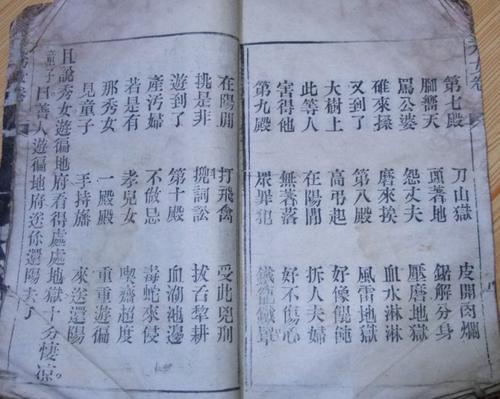 第七殿 刀山獄 皮開肉爛
脚嚮天 頭著地 鋸解分身
罵公婆 怨丈夫 壓磨地獄
碓來操 磨來挨 血水淋淋
又到了 第八殿 風雷地獄
大樹上 高弔起 好像餛飩
此等人 在陽間 拆人夫婦
害得他 無著落 好不傷心
第九殿 眾罪犯
在陽間 打飛禽 受此兇刑
挑是非 攬詞訟 拔舌犂耕
遊到了 第十殿 血湖地邊
產汚婦 不做忌 毒蛇來侵
若是有 孝兒女 喫齋超度
那秀女 一殿殿 重重遊徧
見童子 手持旛 來送還陽
且說秀女遊徧地府看得處處地獄十分悽凉。
童子曰善人遊徧地府送你還陽去了